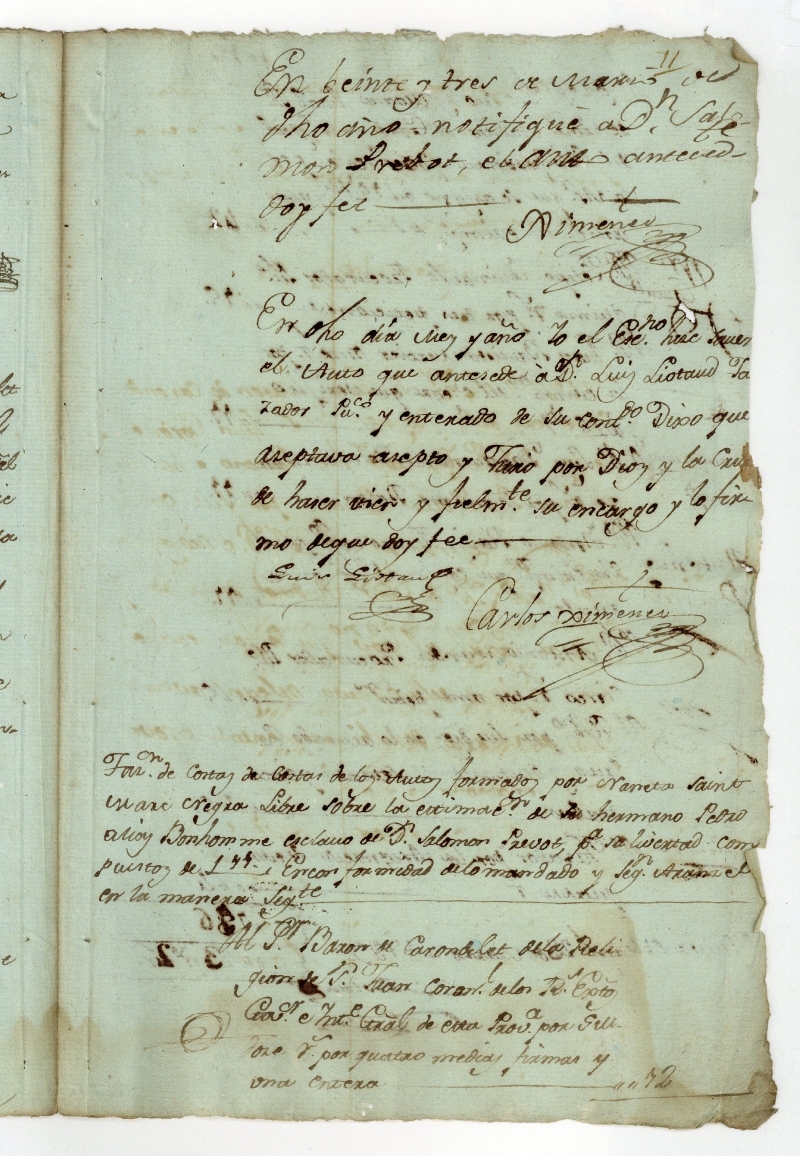 11
En beinte y tres de Marzo de
dho año. notifiqué a Dn. Salo-
mon Prebot, el Auto anteced-
doy fee
Ximenes
En dho dia Mes y año Yo el Esno. hise saver
el Auto que antesede à Dn. Luis Liotaud Ta-
zador Puco. y enterado de su contdo. Dixo que
aseptava asepto y Juró por Dios y la Cruz
de haser vien y fielmte. su encargo y lo fir-
mo deque doy fee
Luis Liotaud
Carlos Ximenes
Tazon. de Costas de Costas de los Autos formados por Naneta Saint
Marc Negra Libre sobre la estimacn. de su hermano Pedro
alioy Bonhomme esclavo de Dn. Salomon Prevot, pa. su livertad com
puestos de en conformidad de lo mandado y segn. Aranzel
en la manera sigte.
Al Sr. Baron de Carondelet de la Reli
gion de Sn. Juan Coronl. de los Rs. Extos
Govor. e Intte. Gral. de esta Prova. por
por quatro medias firmas y
una entera